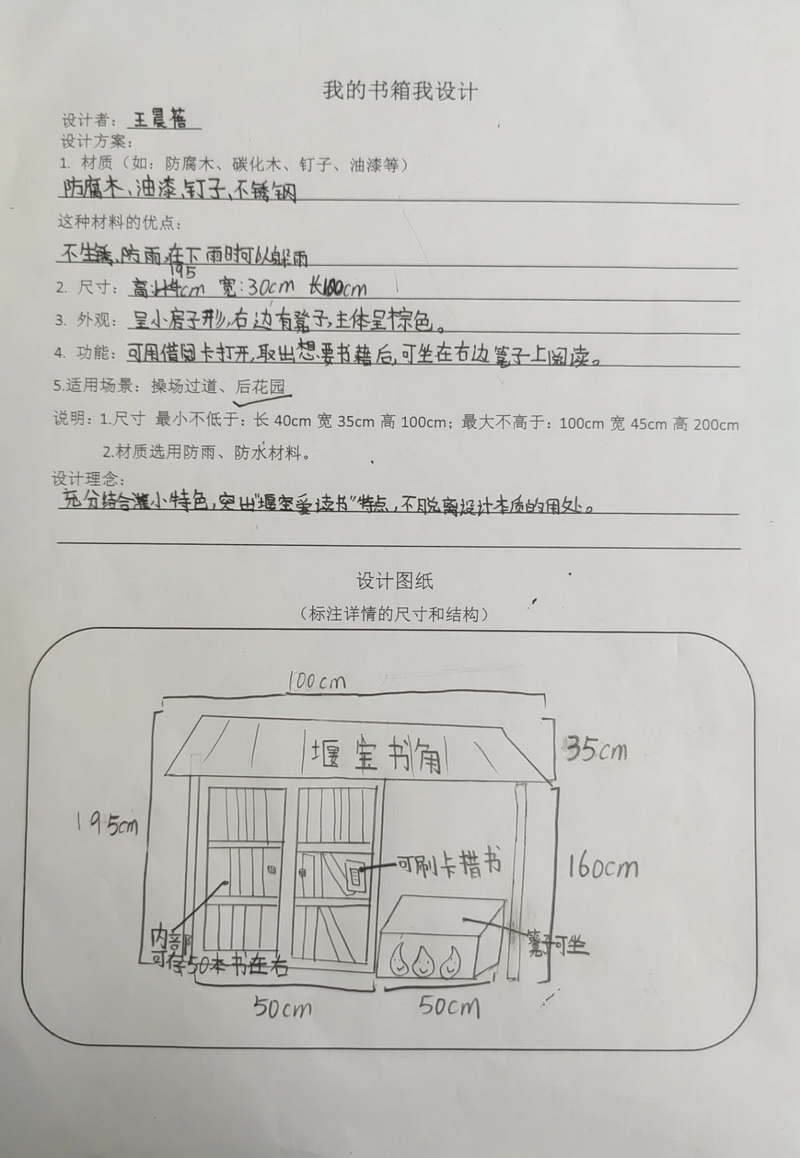 我的书箱我设计
设计者：王晨蓓
设计方案：
1. 材质（如：防腐木、碳化木、钉子、油漆等）
防腐木、油漆、钉子、不锈钢
这种材料的优点：
不生锈、防雨，在下雨时可以躲雨
195
2. 尺寸：高: cm 宽:30cm 长100cm
3. 外观：呈小房子形，右边有凳子，主体呈棕色。
4. 功能：可用借图卡打开，取出想要书籍后，可坐在右边凳子上阅读。
5.适用场景：操场过道、后花园
说明：1.尺寸 最小不低于：长 40cm 宽 35cm 高 100cm；最大不高于：100cm 宽 45cm 高 200cm
2.材质选用防雨、防水材料。
设计理念：
充分结合灌小特色，突出“堰宝爱读书”特点，不脱离设计本质的用处。
设计图纸
（标注详情的尺寸和结构）
100cm
堰宝书角
35cm
195cm
可刷卡措书
160cm
内部
可存50本书左右
凳子可坐
50cm
50cm